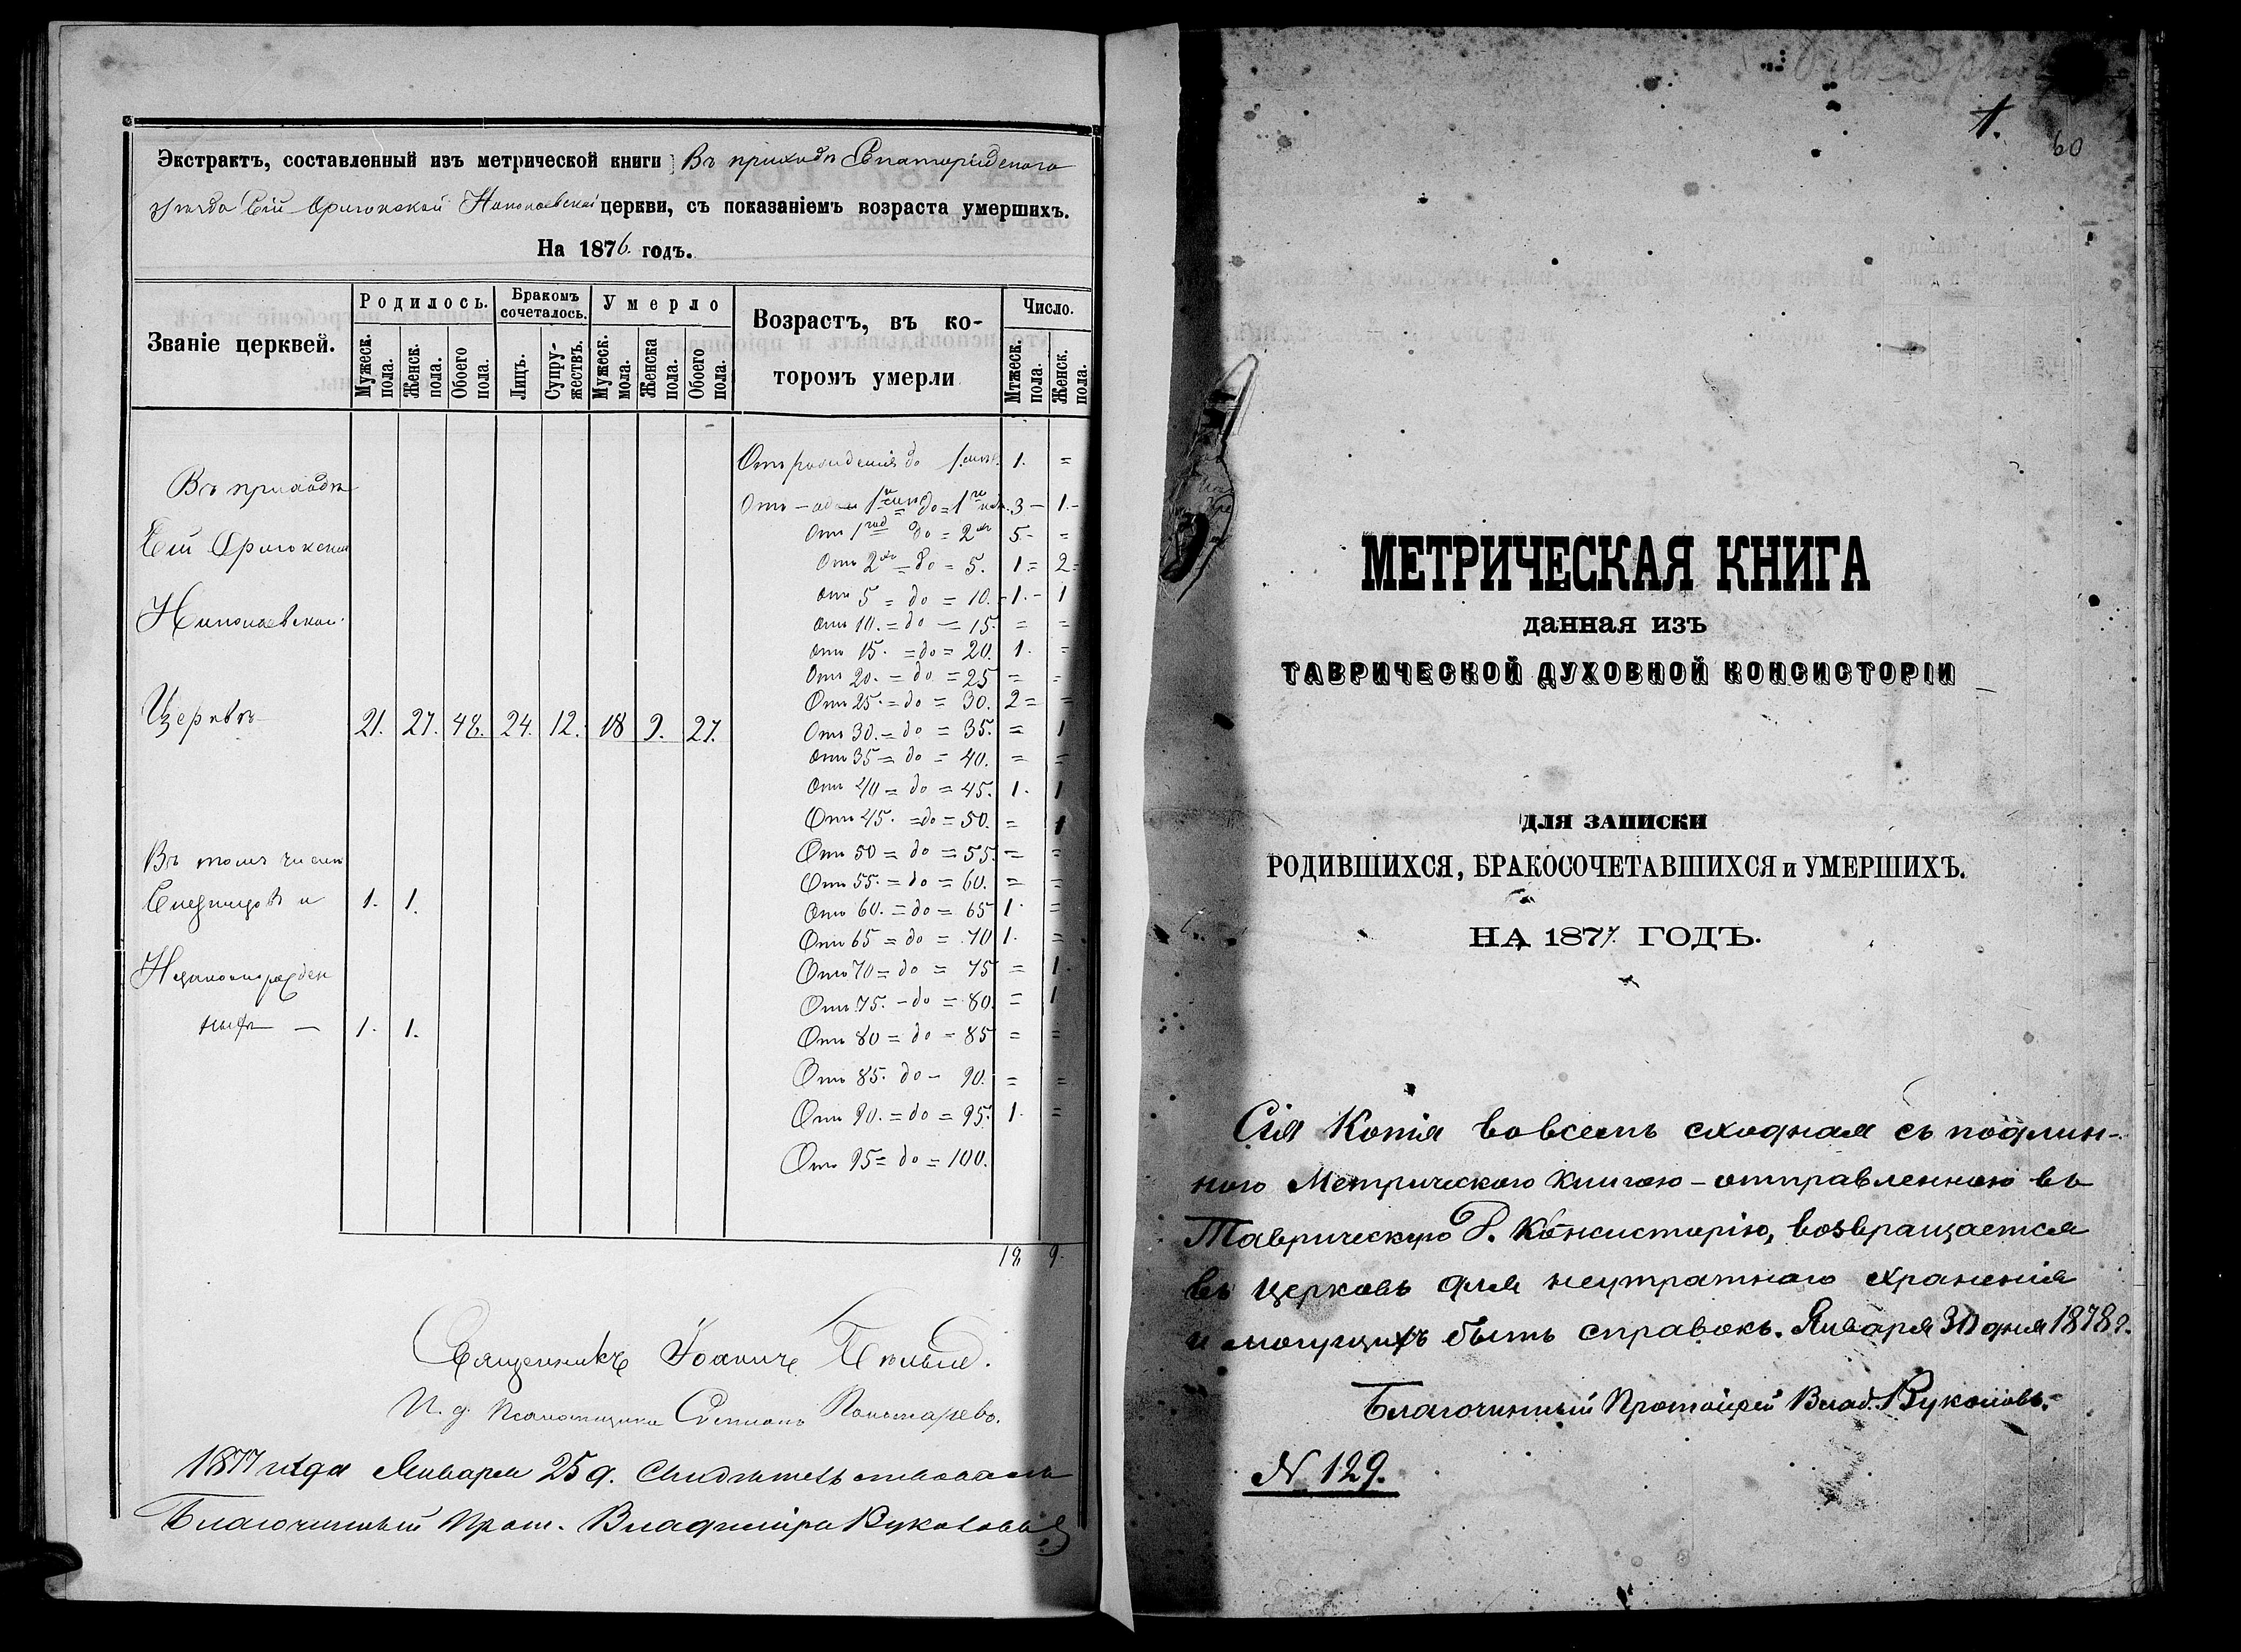 Экстрактъ, составленный изъ метрической книги Въ приходѣ Евпаторійскаго
уѣзда Николаевской церкви, съ показаніемъ возраста умершихъ.
На 1876. годъ.
Званіе церквей.
Родилось.
Бракомъ сочеталось.
Умерло
Возрастъ, въ ко-
торомъ умерли
Число.
Мужеск. пола.
Женск. пола.
Обоего пола.
Лицъ.
Супру-
жествъ.
Мужеск. мола.
Женска пола.
Обоего пола.
Мтжеск. пола.
Женск. пола.
Отъ рожденія до 1. 1. =
Въ приходѣ
Отъ 1 до = 1 3 - 1. -
Отъ 1 до = 2 5 - =
Отъ 2 = до = 5. 1 = 2 =
отъ 5 = до = 10. - 1. - 1
Николаевской
отъ 10. = до = 15. = =
отъ 15. = до = 20. 1. =
Отъ 20. = до = 25 = =
Отъ 25. = до = 30. 2 = =
Церквѣ 21. 27. 48. 24. 12. 18 9. 27.
Отъ 30. = до = 35. = 1
отъ 35 = до = 40. = =
отъ 40 = до = 45. 1. 1
Отъ 45. = до = 50. = 1
Въ томъ числѣ
Отъ 50 = до = 55. = =
Отъ 55. = до = 60. = =
и 1. 1.
Отъ 60. = до = 65 1. =
Отъ 65 = до = 70 1. =
Незаконорожден
Отъ 70 = до = 75 = 1.
Отъ 75. - до = 80. = 1
ныхъ — 1. 1.
Отъ 80 = до = 85 = =
Отъ 85. до - 90. = =
Отъ 90. = до = 95. 1. =
Отъ 95 = до = 100.
18 9.
Священникъ Іоаннъ
И. д. Псаломщика Стефанъ Пономаревъ.
1877 года Января 25 д. Свидѣтельствовалъ
Благочинный Прот. Владиміръ Вуколовъ
1.
60
МЕТРИЧЕСКАЯ КНИГА
данная изъ
ТАВРИЧЕСКОЙ ДУХОВНОЙ КОНСИСТОРІИ
ДЛЯ ЗАПИСКИ
РОДИВШИХСЯ, БРАКОСОЧЕТАВШИХСЯ и УМЕРШИХЪ.
НА 1877. ГОДЪ.
Сія Копія вовсемъ сходная съ подлин-
ною Метрическою Книгою - отправленною въ
Таврическую Д. Консисторію, возвращается
въ церковь для неутратнаго храненія
и могущихъ быть справокъ. Января 30 дня 1878 г.
Благочинный Протоіерей Влад. Вуколовъ.
N 129.